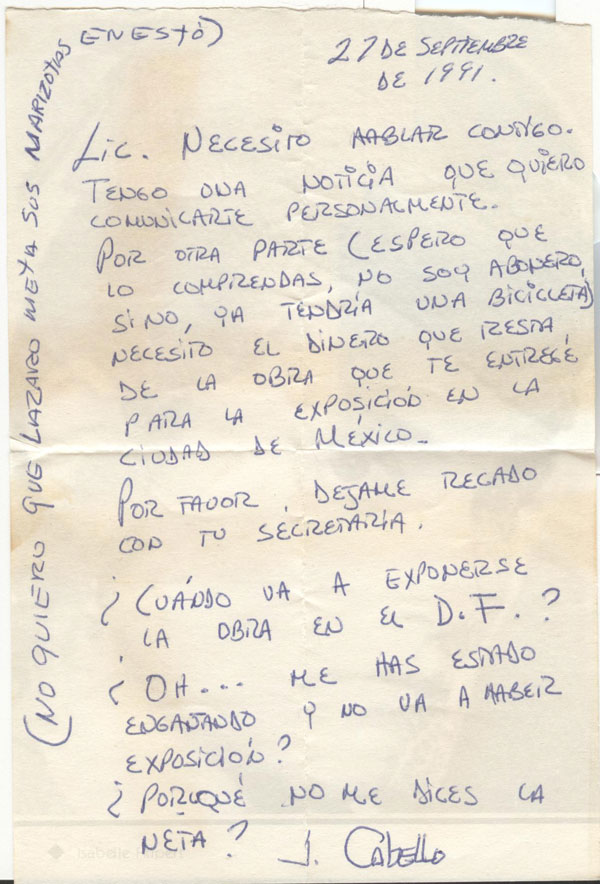 27 DE SEPTIEMBRE
DE 1991.
LIC. NECESITO HABLAR CONTIGO.
TENGO UNA NOTICIA QUE QUIERO
COMUNICARTE PERSONALMENTE.
POR OTRA PARTE (ESPERO QUE
LO COMPRENDAS, NO SOY ABONERO,
SI NO, YA TENDRÍA UNA BICICLETA)
NECESITO EL DINERO QUE RESTA
DE LA OBRA QUE TE ENTREGÉ
PARA LA EXPOSICIÓN EN LA
CIUDAD DE MÉXICO.
POR FAVOR, DEJAME RECADO
CON TU SECRETARIA.
¿CUÁNDO VA A EXPONERSE
LA OBRA EN EL D.F.?
¿OH... ME HAS ESTADO
ENGAÑANDO Y NO VA A HABER
EXPOSICIÓN?
¿PORQUÉ NO ME DICES LA
NETA? J. CABELLO
(NO QUIERO QUE LAZARO META SUS MARIZOTAS
EN ESTO)